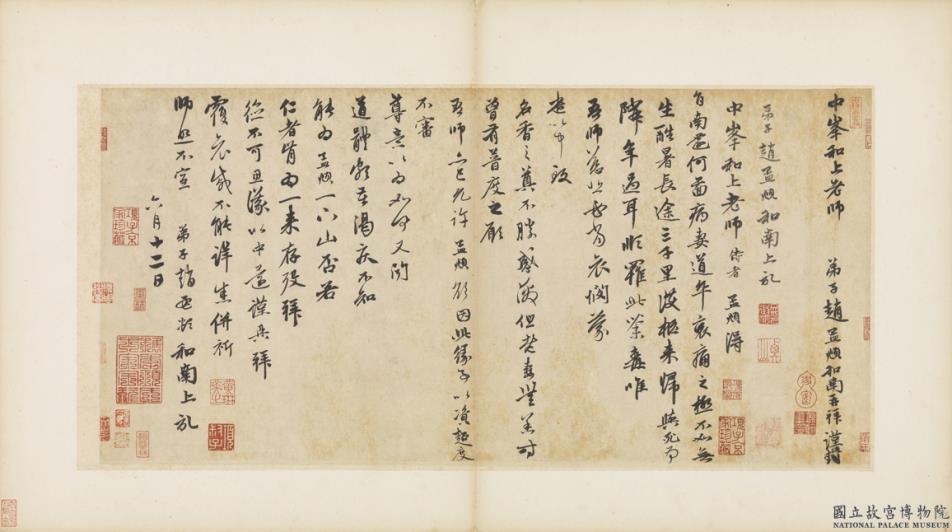 中峯和上老師 弟子趙孟頫和南再拜謹封
弟子趙孟頫和南上記
中峯和上老師侍者孟頫得
旨南還何圖病妻道卒哀痛之極不如無
生酷暑長途三千里護柩來歸與死為
隣年過耳順罹此荼毒唯
吾師慈悲必當哀憫蒙
遣以中致
名香之奠不勝感激但老妻無恙時
曾有普度之願
吾師亦已允許孟頫欲因此緣事以資超度
不審
尊意以為如何又聞
道體頗苦渴疾不知
能為孟頫一下山否若
仁者肯為一來存歿拜
德不可思議以中還謹具拜
覆哀感不能詳悉併祈
師照不宣 弟子趙孟頫和南上記
六月十二日
國立故宮博物院
NATIONAL PALACE MUSEUM